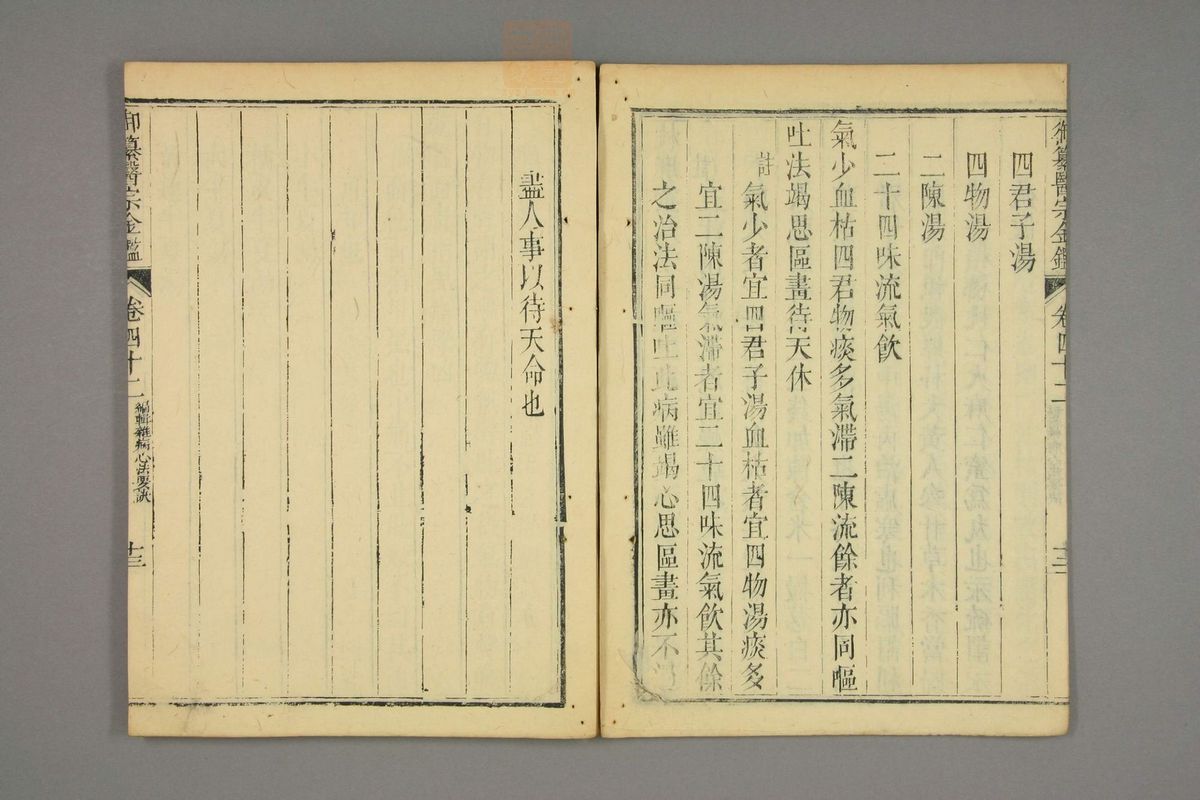 御纂醫宗金鑑 卷四十二
四君子湯
四物湯
二陳湯
二十四味流氣飲
氣少血枯四君物痰多氣滯二陳流餘者亦同嘔
吐法竭思區畫待天休
註
氣少者宜四君子湯血枯者宜四物湯痰多
宜二陳湯氣滯者宜二十四味流氣飲其餘
之治法同嘔吐此病雖竭心思區畫亦不過
盡人事以待天命也
御纂醫宗金鑑 卷四十二 編輯雜病心法要訣 十三